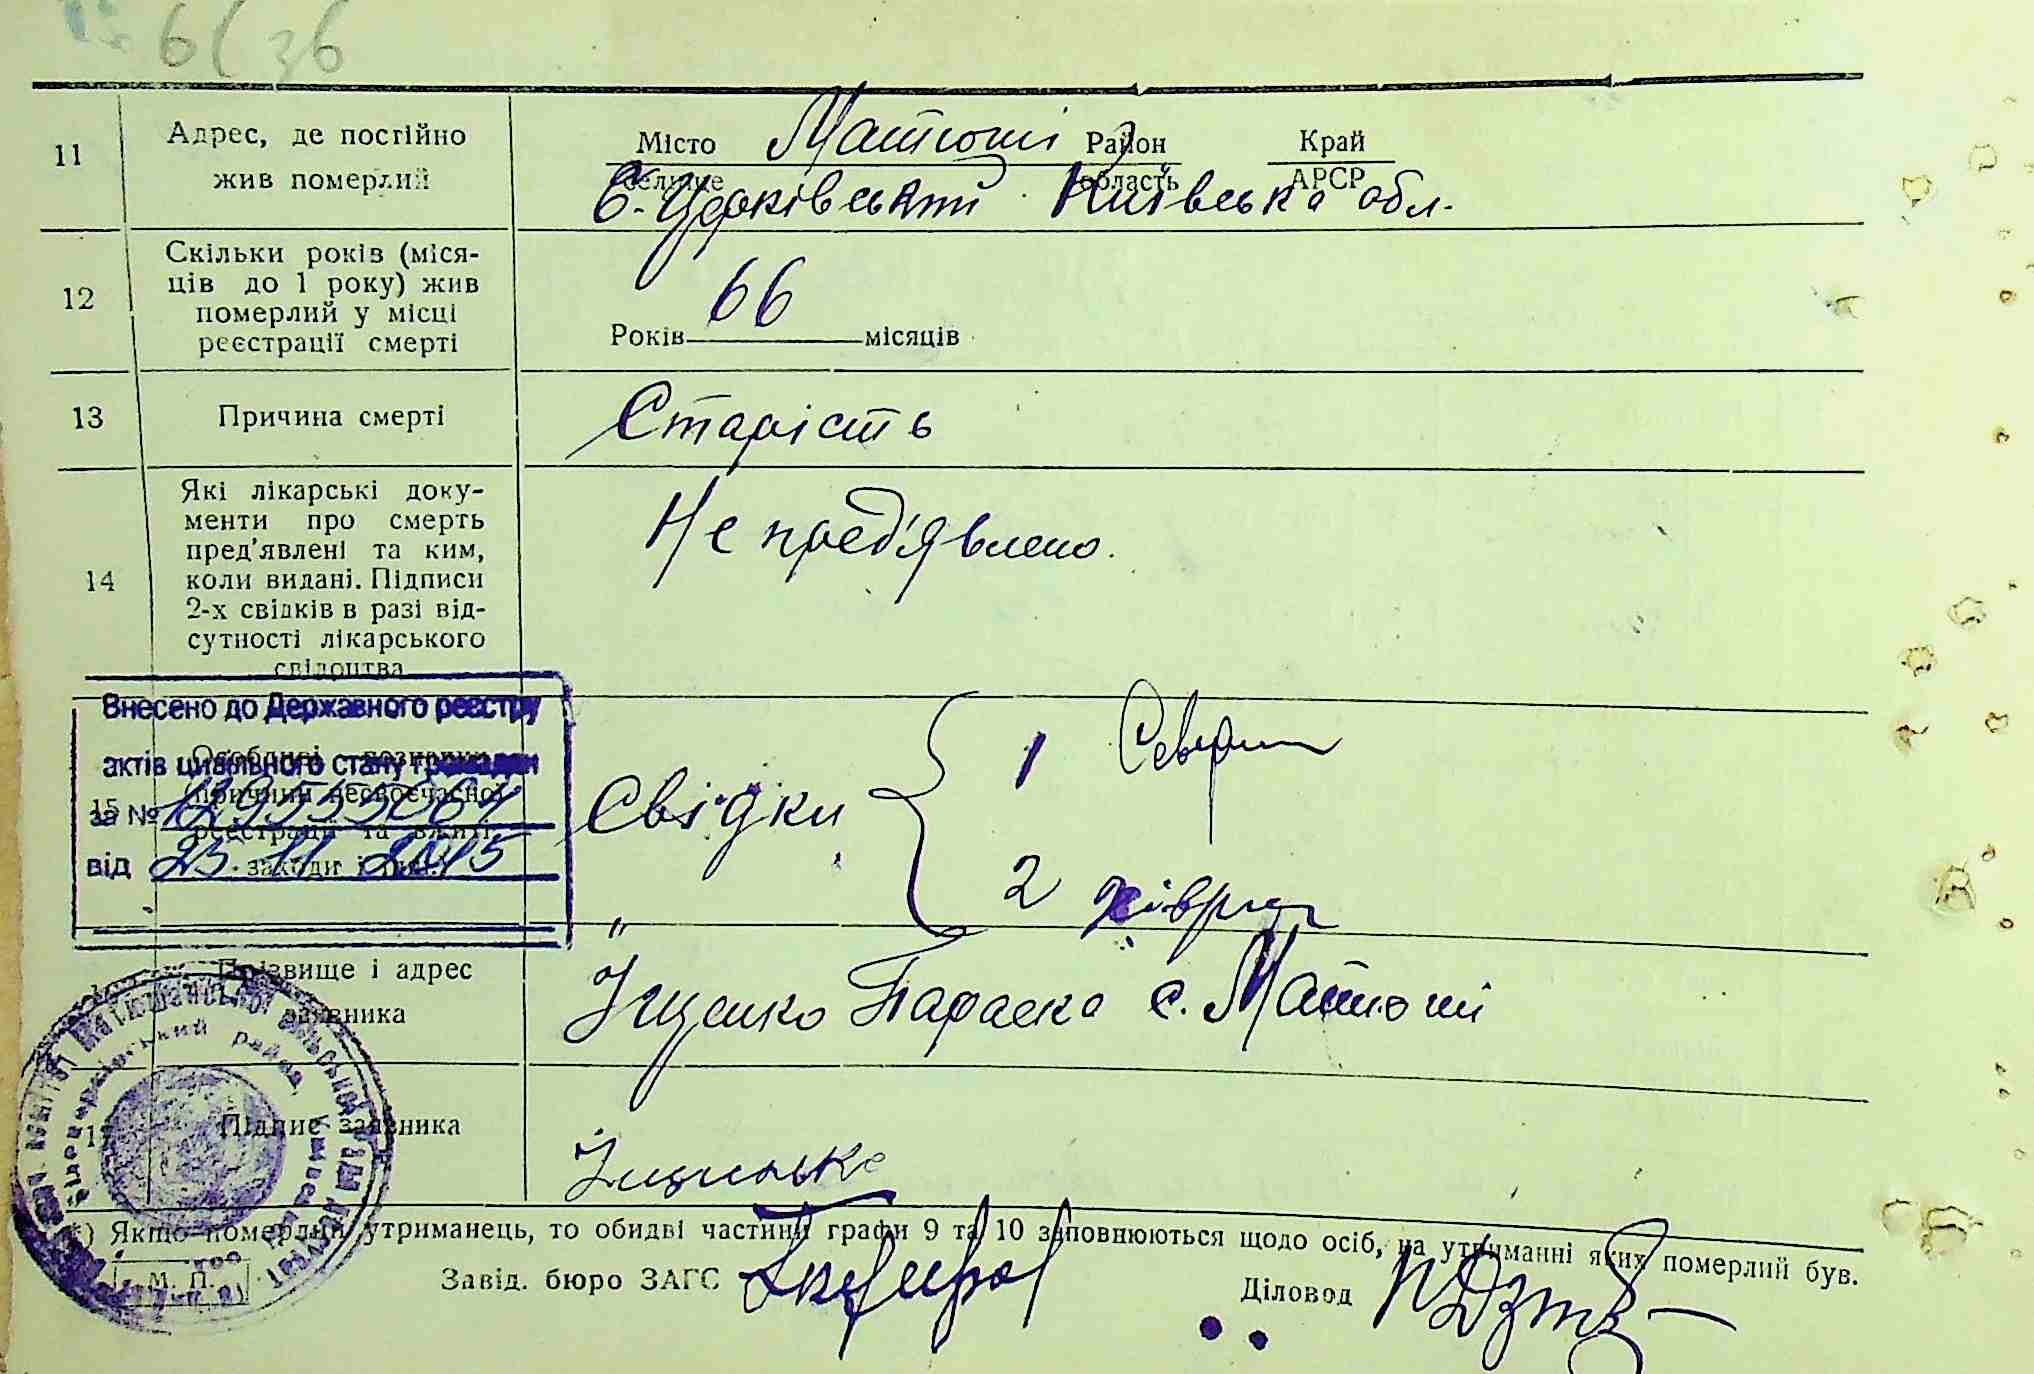 66 36
11
Адрес, де постійно
жив померлий
Місто Матюші Район Край
селище область АРСР
Б. Церківський Київська обл.
12
Скільки років (міся-
ців до 1 року) жив
померлий у місці
реєстрації смерті
Років 66 місяців
13
Причина смерті
Старість
14
Які лікарські доку-
менти про смерть
пред'явлені та ким,
коли видані. Підписи
2-х свідків в разі від-
сутності лікарського
свідоцтва
Не пред'явлено.
Внесено до Державного реєстру
актів цивільного стану громадян
за №
від 23.11.2015
15
Особливі познач
причини несвоєчасної
реєстрації та вжиті
заходи і
Свідки
1
2
"
Прізвище і адрес
заявника
Іщенко Параска с. Матюші
Підпис заявника
*) Якщо померлий утриманець, то обидві частини графи 9 та 10 заповнюються щодо осіб, на утриманні яких померлий був.
М. П.
Завід. бюро ЗАГС
Діловод